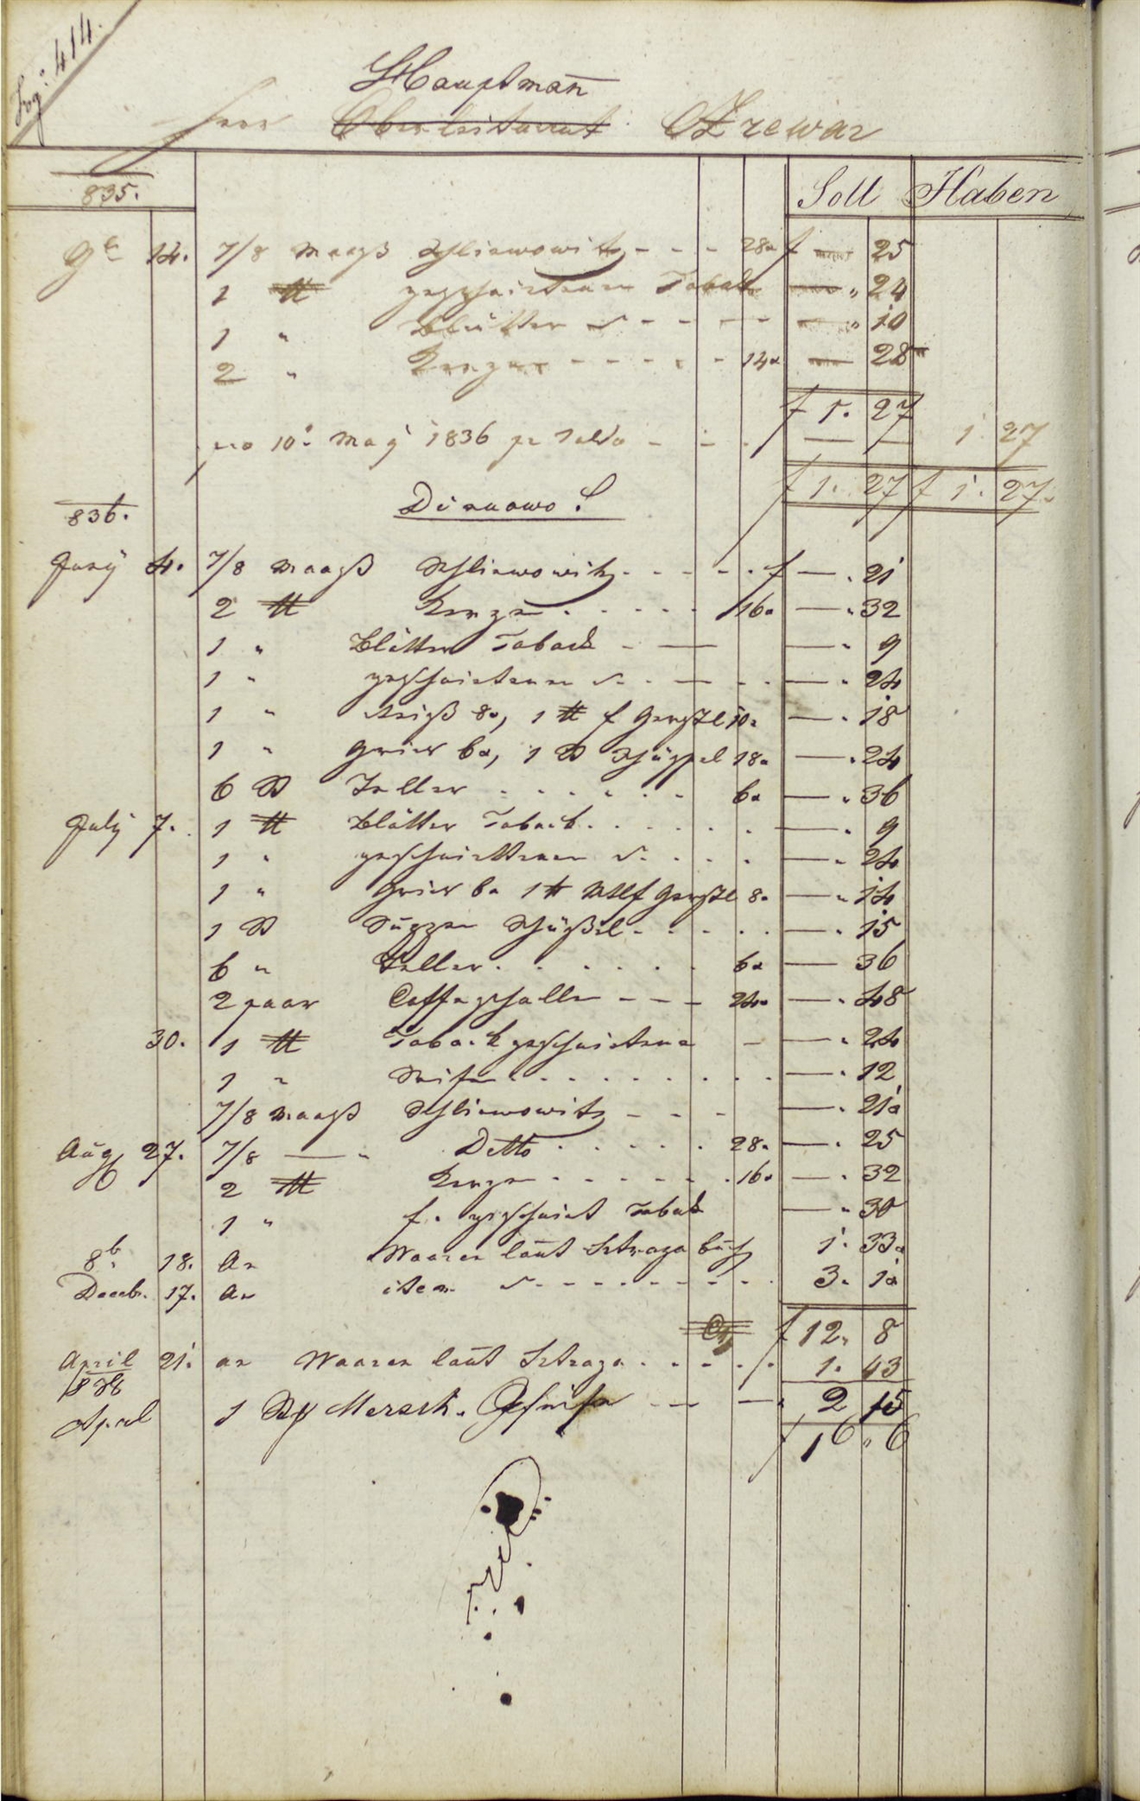 414.
Hauptman̄
Herr Oberleitnant Zrewar
835.
Soll Haben
9b 14. 7/8 Maaß Schliwowitz - - - 28x f — 25
1 ℔ geschnittenen Taback — „ 24
1 „ Blätter do - - - — „ 10
2 „ Kerzen - - - - - 14x — 28
f 1. 27
pro 10. May 1836 pr Saldo - - . — — 1. 27
f 1. 27 f 1. 27.
836.
Juny 4. 7/8 Maaß Schliwowitz - - - - . f — . 21
2 ℔ Kerzen . . . . . 16x — „ 32
1 „ Blätter Taback - — — „ 9
1 „ geschnittenen do . — . . — „ 24
1 „ Reiß 8x, 1 ℔ f Gerstl 10x — „ 18
1 „ Gries 6x, 1 St Schüssel 18x — „ 24
6 St Teller . . . . . . 6x — „ 36
July 7. 1 ℔ Blätter Taback . . . . . . — „ 9
1 „ geschnittenen do . . . . — „ 24
1 „ Gries 6x 1 ℔ Gerstl 8x — „ 14
1 St Suppen Schüßel - - . . . — „ 15
6 „ Teller . . . . . . 6x — 36
2 paar Caffeschallen - - - 24x — „ 48
30. 1 ℔ Taback geschnittene - — „ 24
1 „ Seife . . . . . . . — „ 12
7/8 Maaß Schliwowitz - - - — „ 21
Aug 27. 7/8 — „ Detto . . . . . 28x — . 25
2 ℔ Kerzen . . . . . 16x — . 32
1 „ f. geschnitt Taback — „ 30
8b 18. An Waaren laut Strazza buch 1. 33
Decemb. 17. An item do - - - - - - 3. 1
f 12. 8
April 21. an Waaren laut Strazza . . . . . 1. 43
838
April 1 — — 2 15
f 16 „ 6